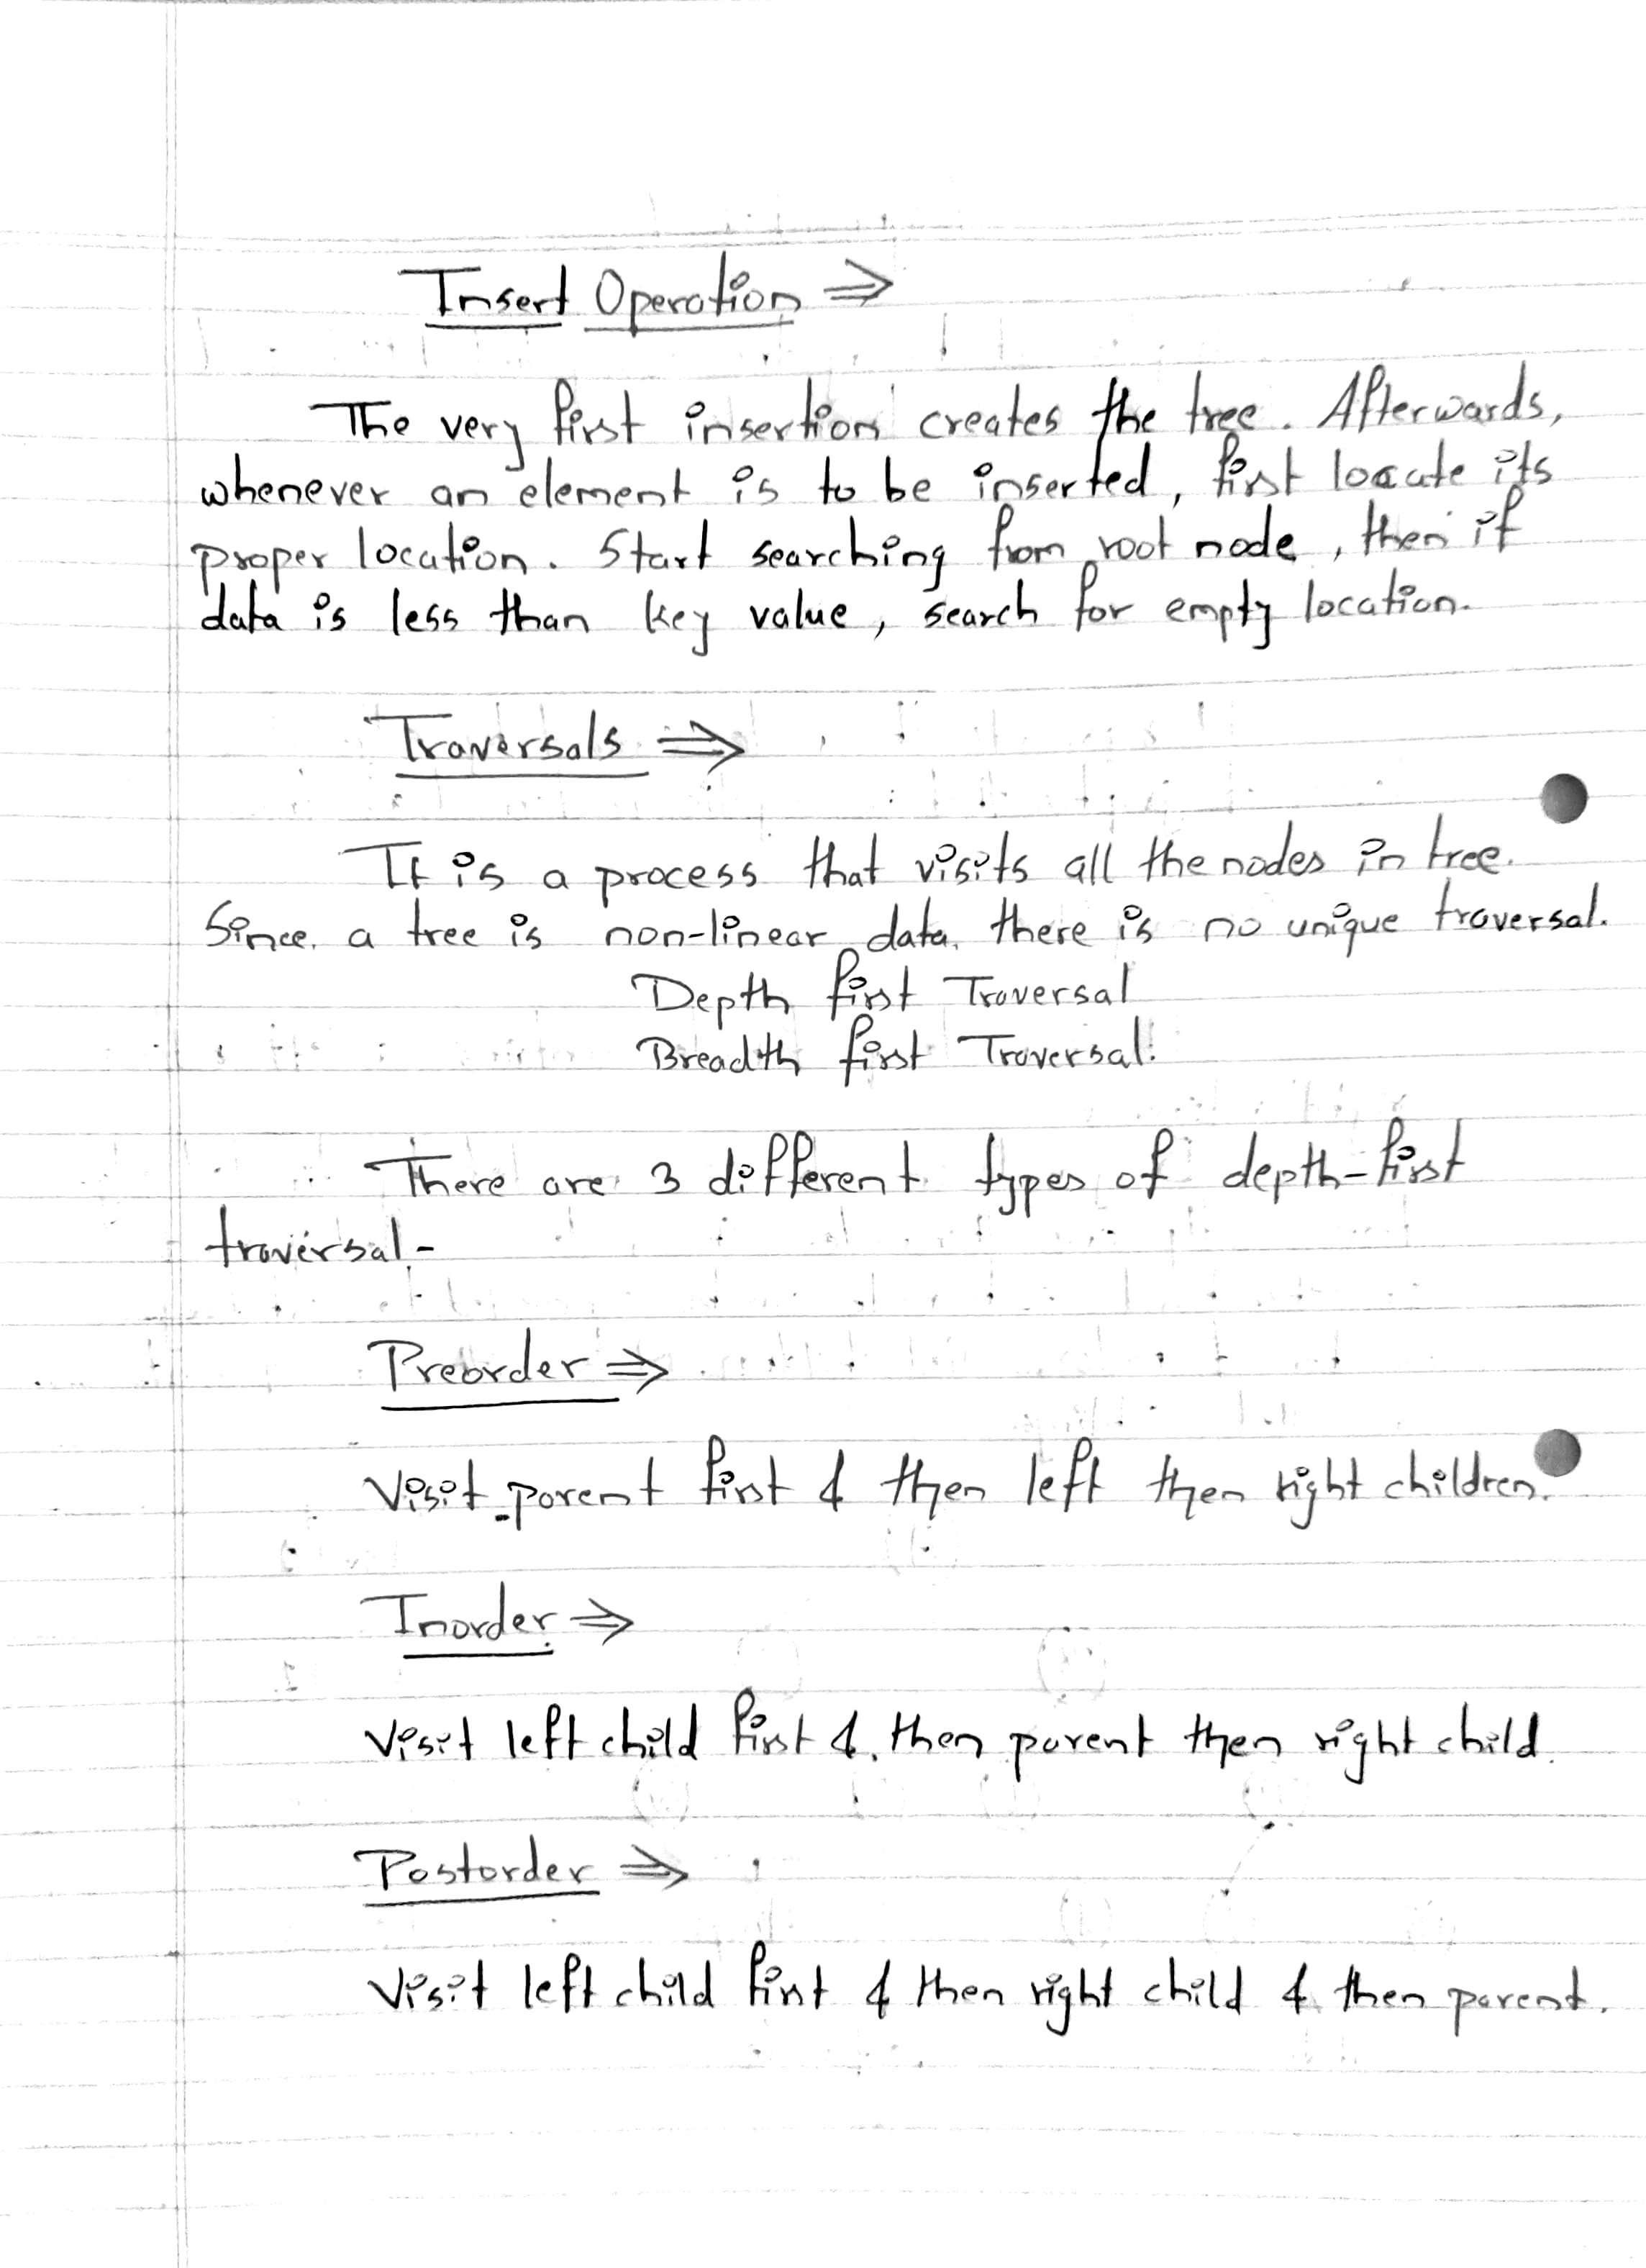 Insert Operation ⇒
The very first insertion creates the tree. Afterwards,
whenever an element is to be inserted, first locate its
proper location. Start searching from root node, then if
data is less than key value, search for empty location.
Traversals ⇒
It is a process that visits all the nodes in tree.
Since a tree is non-linear data, there is no unique traversal.
Depth first Traversal
Breadth first Traversal.
There are 3 different types of depth-first
traversal-
Preorder ⇒
Visit parent first & then left then right children.
Inorder ⇒
Visit left child first & then parent then right child.
Postorder ⇒
Visit left child first & then right child & then parent.